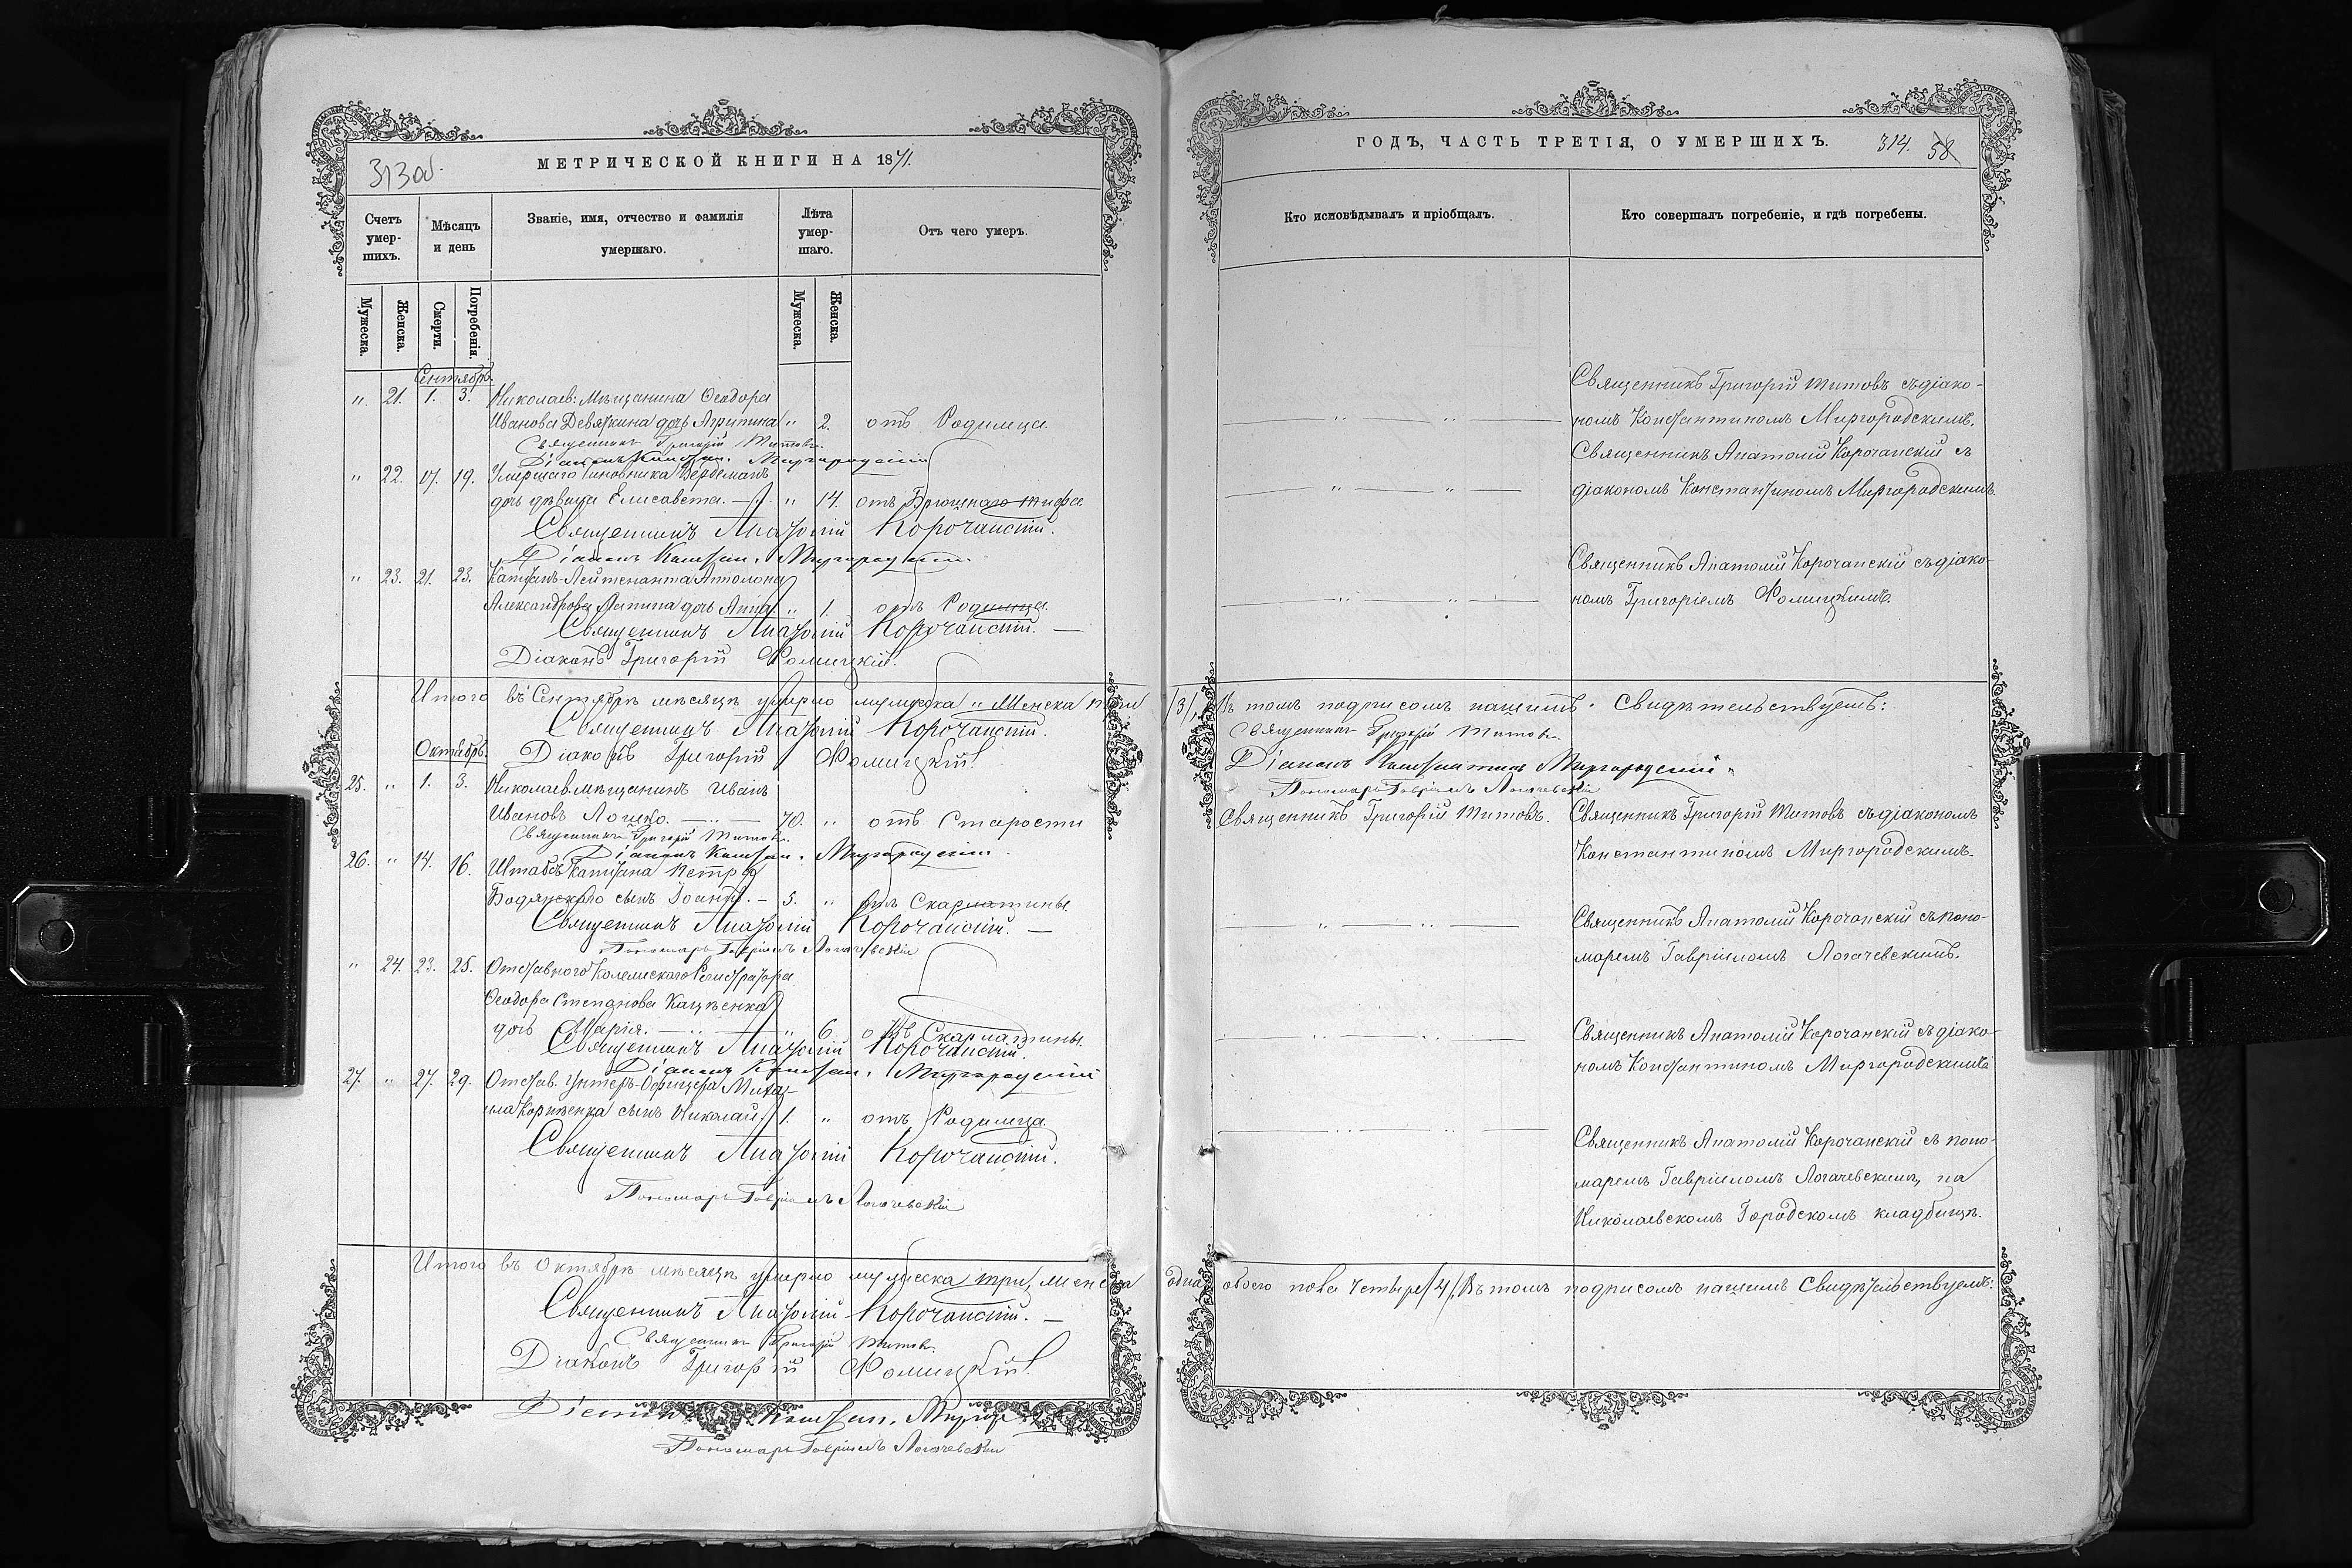 313 об.
МЕТРИЧЕСКОЙ КНИГИ НА 1871.
Счетъ умер-шихъ.
Мѣсяцъ и день
Званіе, имя, отчество и фамилія умершаго.
Лѣта умер-шаго.
Отъ чего умеръ.
Мужеска.
Женска.
Смерти.
Погребенія.
Мужеска.
Женска.
Сентябрь.
" 21. 1. 3. Николаев: Мѣщанина Ѳеодора
Иванова Девяткина дочь Агрипина " 2. отъ Родимца
Священникъ Григорій Титовъ.
Діаконъ Констан. Миргородскій
" 22. 17. 19. Умершаго Чиновника
дочь дѣвица Елисавета. " 14. отъ Брюшнаго тифа
Священникъ Анатолій Корочанскій.
Діаконъ Констан. Миргородскій
" 23. 21. 23. Капитанъ-Лейтенанта Аполона
Александрова дочь Анна " 1. отъ Родимца.
Священникъ Анатолій Корочанскій.
Діаконъ Григорій Фомицкій.
Итого въ Сентябрѣ мѣсяцѣ умерло мужеска " Женска три
Священникъ Анатолій Корочанскій.
Діаконъ Григорій Фомицкій.
Октябрь.
25. " 1. 3. Николаев. мѣщанинъ Иванъ
Ивановъ 70. " отъ Старости
Священникъ Григорій Титовъ.
Діаконъ Констан. Миргородскій.
26. " 14. 16. Штабсъ Капитана Петра
Бодянскаго сынъ Іоаннъ. 5. " отъ Скарлатины.
Священникъ Анатолій Корочанскій.
Пономарь Гавріилъ Логачевскій
" 24. 23. 25. Отставного Колежскаго Регистратора
Ѳеодора Степанова
дочь Марія. " 6. отъ Скарлатины.
Священникъ Анатолій Корочанскій.
Діаконъ Констан. Миргородскій
27. " 27. 29. Отстав. Унтеръ-Офицера Миха-
ила Корніенка сынъ Николай. 1. " отъ Родимца.
Священникъ Анатолій Корочанскій.
Пономарь Гавріилъ Логачевскій
Итого въ Октябрѣ мѣсяцѣ умерло мужеска три, женска
Священникъ Анатолій Корочанскій.
Священникъ Григорій Титовъ.
Діаконъ Григорій Фомицкій.
Діаконъ Констан. Миргородскій
Пономарь Гавріилъ Логачевскій
ГОДЪ, ЧАСТЬ ТРЕТІЯ, О УМЕРШИХЪ.
314. 58
Кто исповѣдывалъ и пріобщалъ.
Кто совершалъ погребеніе, и гдѣ погребены.
Священникъ Григорій Титовъ съ діако-
номъ Константиномъ Миргородскимъ.
Священникъ Анатолій Корочанскій съ
діакономъ Константиномъ Миргородскимъ.
Священникъ Анатолій Корочанскій съ діако-
номъ Григоріемъ Фомицкимъ.
/3/, въ томъ подписомъ нашимъ Свидѣтельствуемъ:
Священникъ Григорій Титовъ.
Діаконъ Константинъ Миргородскій
Пономарь Гавріилъ Логачевскій
Священникъ Григорій Титовъ. Священникъ Григорій Титовъ съ діакономъ
Константиномъ Миргородскимъ.
Священникъ Анатолій Корочанскій съ поно-
маремъ Гавріиломъ Логачевскимъ.
Священникъ Анатолій Корочанскій съ діако-
номъ Константиномъ Миргородскимъ
Священникъ Анатолій Корочанскій съ поно-
маремъ Гавріиломъ Логачевскимъ, на
Николаевскомъ Городскомъ кладбищѣ.
одна, обоего пола четыре /4/, Въ томъ подписомъ нашимъ Свидѣтельствуемъ: